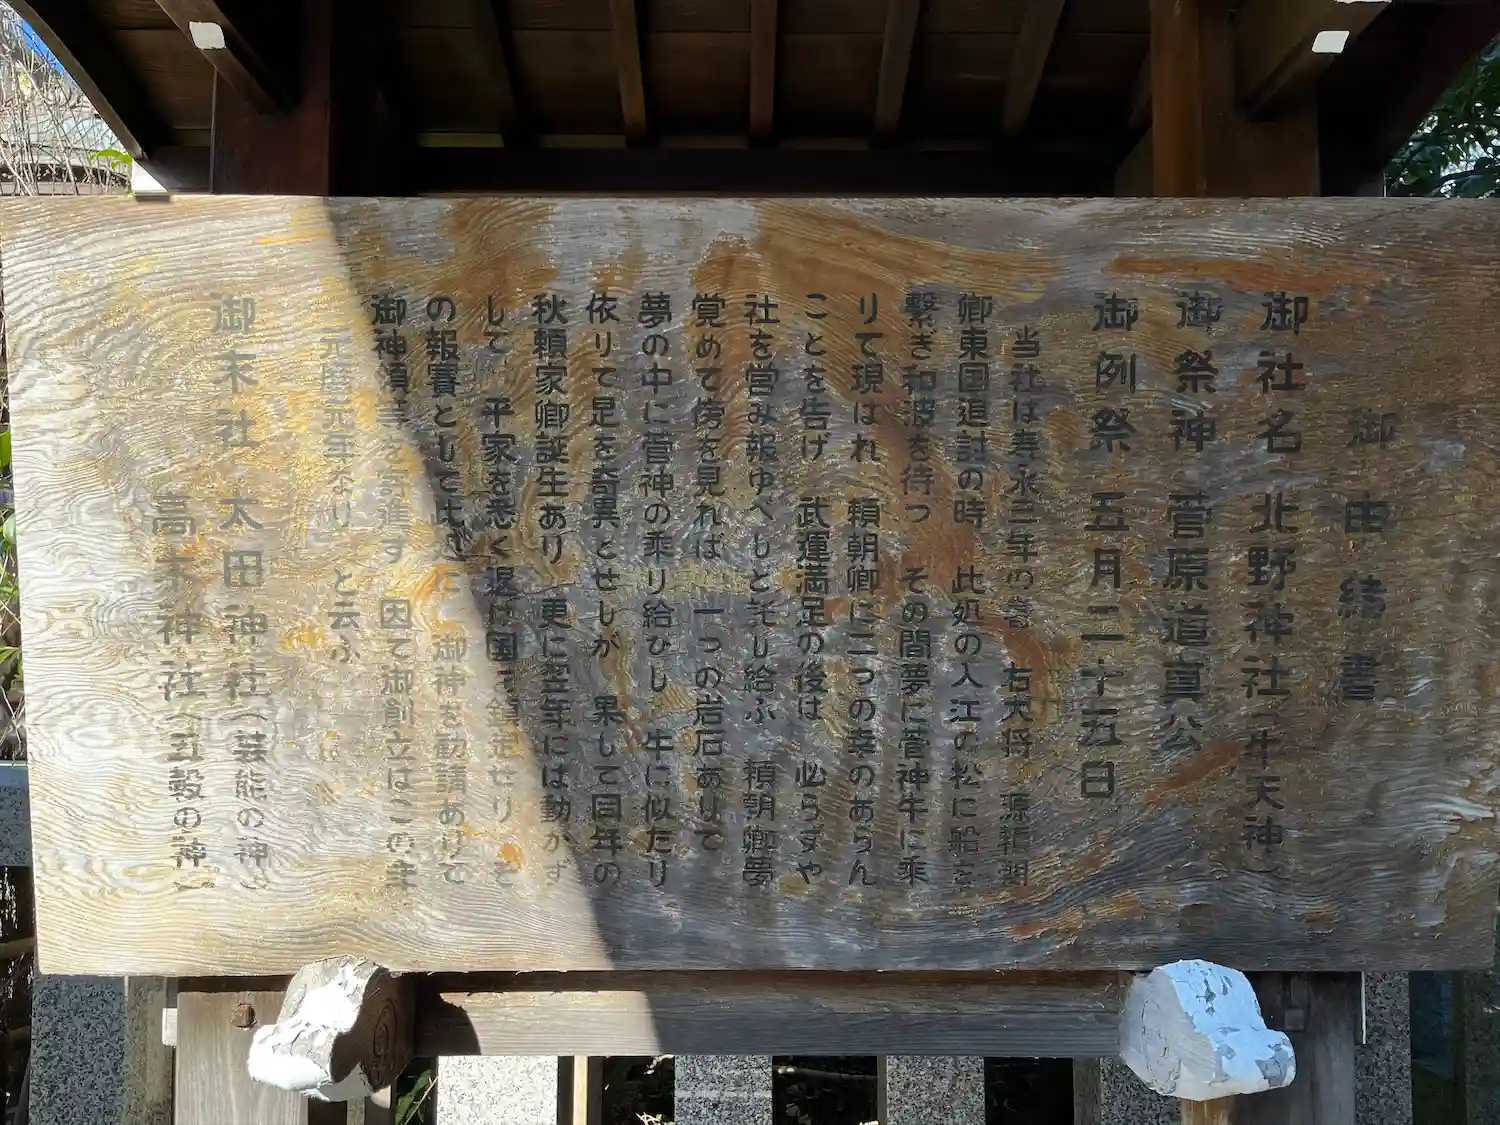 御由緒書
御社名 北野神社(牛天神)
御祭神 菅原道真公
御例祭 五月二十五日
当社は寿永二年の春 右大将 源頼朝
卿東国追討の時 此処の入江の松に船を
繋ぎ和波を待つ その間夢に菅神牛に乗
りて現はれ 頼朝卿に二つの幸のあらん
ことを告げ 武運満足の後は 必らずや
社を営み報ゆべしと託し給ふ 頼朝卿夢
覚めて傍を見れば 一つの岩石ありて
夢の中に菅神の乗り給ひし 牛に似たり
依りて足を奇異とせしが 果して同年の
秋頼家卿誕生あり 更に翌年には動かず
して 平家を悉く退け国を鎮定せり を
の報賽として此処に 御神を勧請ありて
御神領等を寄進す 因て御創立はこの年
元暦元年なり と云ふ
御末社 太田神社(芸能の神)
高木神社(五穀の神)